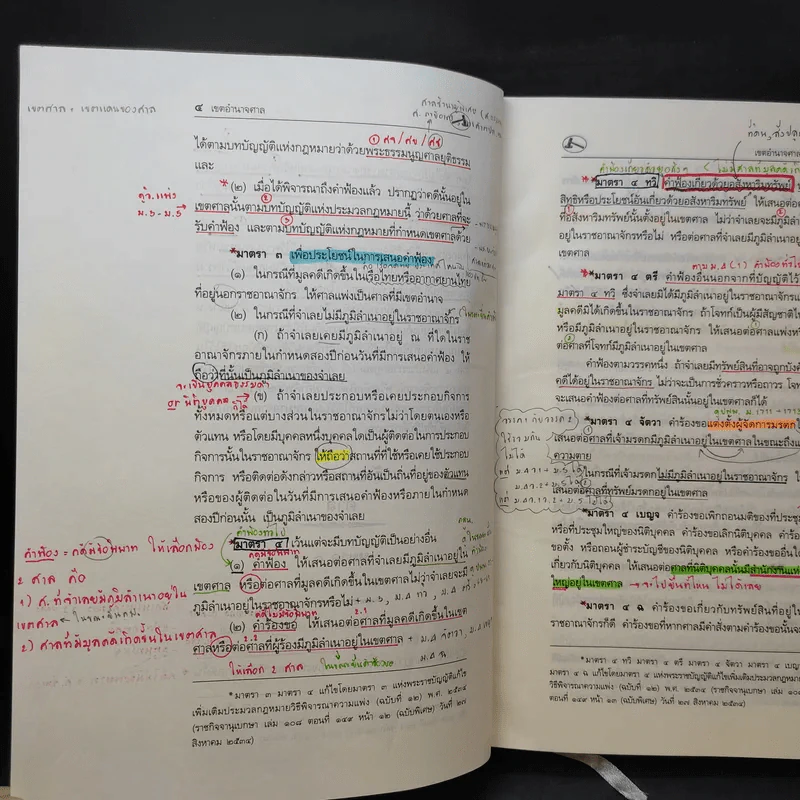 เขตศาล = เขตแดนของศาล
๔ เขตอำนาจศาล
ได้ตามบทบัญญัติแห่งกฎหมายว่าด้วยพระธรรมนูญศาลยุติธรรม
และ
*(๒) เมื่อได้พิจารณาถึงคำฟ้องแล้ว ปรากฏว่าคดีนั้นอยู่ใน
เขตศาลนั้นตามบทบัญญัติแห่งประมวลกฎหมายนี้ ว่าด้วยศาลที่จะ
รับคำฟ้อง และตามบทบัญญัติแห่งกฎหมายที่กำหนดเขตศาลด้วย
*มาตรา ๓ เพื่อประโยชน์ในการเสนอคำฟ้อง
(๑) ในกรณีที่มูลคดีเกิดขึ้นในเรือไทยหรืออากาศยานไทย
ที่อยู่นอกราชอาณาจักร ให้ศาลแพ่งเป็นศาลที่มีเขตอำนาจ
(๒) ในกรณีที่จำเลยไม่มีภูมิลำเนาอยู่ในราชอาณาจักร
(ก) ถ้าจำเลยเคยมีภูมิลำเนาอยู่ ณ ที่ใดในราช
อาณาจักรภายในกำหนดสองปีก่อนวันที่มีการเสนอคำฟ้อง ให้
ถือว่าที่นั้นเป็นภูมิลำเนาของจำเลย
จะเป็นบุคคลธรรมดา
or นิติบุคคล
(ข) ถ้าจำเลยประกอบหรือเคยประกอบกิจการ
ทั้งหมดหรือแต่บางส่วนในราชอาณาจักรไม่ว่าโดยตนเองหรือ
ตัวแทน หรือโดยมีบุคคลหนึ่งบุคคลใดเป็นผู้ติดต่อในการประกอบ
กิจการนั้นในราชอาณาจักร ให้ถือว่าสถานที่ที่ใช้หรือเคยใช้ประกอบ
กิจการ หรือติดต่อดังกล่าวหรือสถานที่อันเป็นถิ่นที่อยู่ของตัวแทน
หรือของผู้ติดต่อในวันที่มีการเสนอคำฟ้องหรือภายในกำหนด
สองปีก่อนนั้น เป็นภูมิลำเนาของจำเลย
คำฟ้องทั่วไป
*มาตรา ๔ เว้นแต่จะมีบทบัญญัติเป็นอย่างอื่น
คดีมีข้อพิพาท
(๑) คำฟ้อง ให้เสนอต่อศาลที่จำเลยมีภูมิลำเนาอยู่ใน
เขตศาล หรือต่อศาลที่มูลคดีเกิดขึ้นในเขตศาลไม่ว่าจำเลยจะมี
ภูมิลำเนาอยู่ในราชอาณาจักรหรือไม่
คดีไม่มีข้อพิพาท
(๒) คำร้องขอ ให้เสนอต่อศาลที่มูลคดีเกิดขึ้นในเขต
ศาลหรือต่อศาลที่ผู้ร้องมีภูมิลำเนาอยู่ในเขตศาล
ให้เลือก 2 ศาล
คำฟ้อง = คดีมีข้อพิพาท ให้เลือกฟ้อง
2 ศาล คือ
1) ศ.ที่จำเลยมีภูมิลำเนาอยู่ใน
เขตศาล
2) ศาลที่มีมูลคดีเกิดขึ้นในเขตศาล
* มาตรา ๓ มาตรา ๔ แก้ไขโดยมาตรา ๓ แห่งพระราชบัญญัติแก้ไข
เพิ่มเติมประมวลกฎหมายวิธีพิจารณาความแพ่ง (ฉบับที่ ๑๒) พ.ศ. ๒๕๓๔
(ราชกิจจานุเบกษา เล่ม ๑๐๘ ตอนที่ ๑๔๙ หน้า ๑๒ (ฉบับพิเศษ) วันที่ ๒๗
สิงหาคม ๒๕๓๔)
เขตอำนาจศาล
*มาตรา ๔ ทวิ คำฟ้องเกี่ยวด้วยอสังหาริมทรัพย์
สิทธิหรือประโยชน์อันเกี่ยวด้วยอสังหาริมทรัพย์ ให้เสนอต่อ
ที่อสังหาริมทรัพย์นั้นตั้งอยู่ในเขตศาล ไม่ว่าจำเลยจะมีภูมิลำ
อยู่ในราชอาณาจักรหรือไม่ หรือต่อศาลที่จำเลยมีภูมิลำเนาอยู่
เขตศาล
*มาตรา ๔ ตรี คำฟ้องอื่นนอกจากที่บัญญัติไว้
มาตรา ๔ ทวิ ซึ่งจำเลยมิได้มีภูมิลำเนาอยู่ในราชอาณาจักรแ
มูลคดีมิได้เกิดขึ้นในราชอาณาจักร ถ้าโจทก์เป็นผู้มีสัญชาติไ
หรือมีภูมิลำเนาอยู่ในราชอาณาจักร ให้เสนอต่อศาลแพ่งหรือ
ต่อศาลที่โจทก์มีภูมิลำเนาอยู่ในเขตศาล
คำฟ้องตามวรรคหนึ่ง ถ้าจำเลยมีทรัพย์สินที่อาจถูกบังคั
คดีได้อยู่ในราชอาณาจักร ไม่ว่าจะเป็นการชั่วคราวหรือถาวร โจท
จะเสนอคำฟ้องต่อศาลที่ทรัพย์สินนั้นอยู่ในเขตศาลก็ได้
*มาตรา ๔ จัตวา คำร้องขอแต่งตั้งผู้จัดการมรดก
เสนอต่อศาลที่เจ้ามรดกมีภูมิลำเนาอยู่ในเขตศาลในขณะถึงแ
ความตาย
ในกรณีที่เจ้ามรดกไม่มีภูมิลำเนาอยู่ในราชอาณาจักร
เสนอต่อศาลที่ทรัพย์มรดกอยู่ในเขตศาล
*มาตรา ๔ เบญจ คำร้องขอเพิกถอนมติของที่ประชุม
หรือที่ประชุมใหญ่ของนิติบุคคล คำร้องขอเลิกนิติบุคคล คำร้อง
ขอตั้ง หรือถอนผู้ชำระบัญชีของนิติบุคคล หรือคำร้องขออื่นใด
เกี่ยวกับนิติบุคคล ให้เสนอต่อศาลที่นิติบุคคลนั้นมีสำนักงานแห่
ใหญ่อยู่ในเขตศาล
*มาตรา ๔ ฉ คำร้องขอเกี่ยวกับทรัพย์สินที่อยู่ใน
ราชอาณาจักรก็ดี คำร้องขอที่หากศาลมีคำสั่งตามคำร้องขอนั้นจะ
* มาตรา ๔ ทวิ มาตรา ๔ ตรี มาตรา ๔ จัตวา มาตรา ๔ เบญ
มาตรา ๔ ฉ แก้ไขเพิ่มเติมโดยมาตรา ๔ แห่งพระราชบัญญัติแก้ไขเพิ่มเติมประมวล
วิธีพิจารณาความแพ่ง (ฉบับที่ ๑๒) พ.ศ. ๒๕๓๔ (ราชกิจจานุเบกษา เล่ม ๑๐
ตอนที่ ๑๔๙ หน้า ๑๓ (ฉบับพิเศษ) วันที่ ๒๗ สิงหาคม ๒๕๓๔)